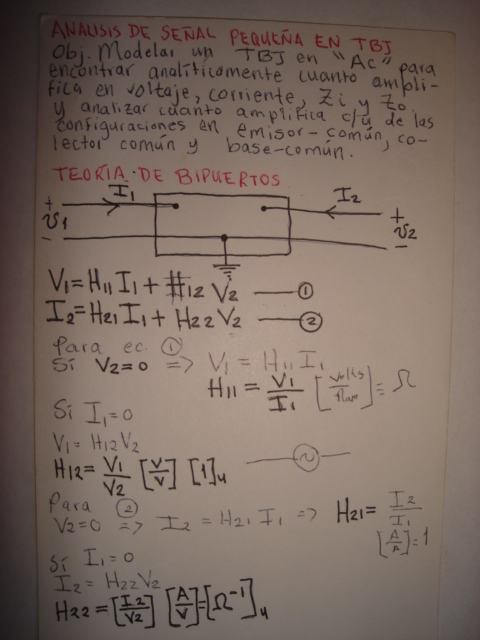 ANALISIS DE SEÑAL PEQUEÑA EN TBJ
Obj. Modelar un TBJ en "Ac" para
encontrar analíticamente cuanto ampli-
fica en voltaje, corriente, Zi y Zo
y analizar cuanto amplifica c/u de las
configuraciones en emisor-común, co-
lector común y base-común.
TEORÍA DE BIPUERTOS
I1 I2
+ +
v1 v2
- -
V1=H11I1+H12V2 — ①
I2=H21I1+H22V2 — ②
Para ec. ①
Sí V2=0 => V1=H11I1
H11=V1/I1 [Volts/Amp]=Ω
Sí I1=0
V1=H12V2
H12=V1/V2 [V/V] [1]u
Para ②
V2=0 => I2=H21I1 => H21=I2/I1
[A/A]=1
Sí I1=0
I2=H22V2
H22=[I2/V2] [A/V]=[Ω⁻¹]u